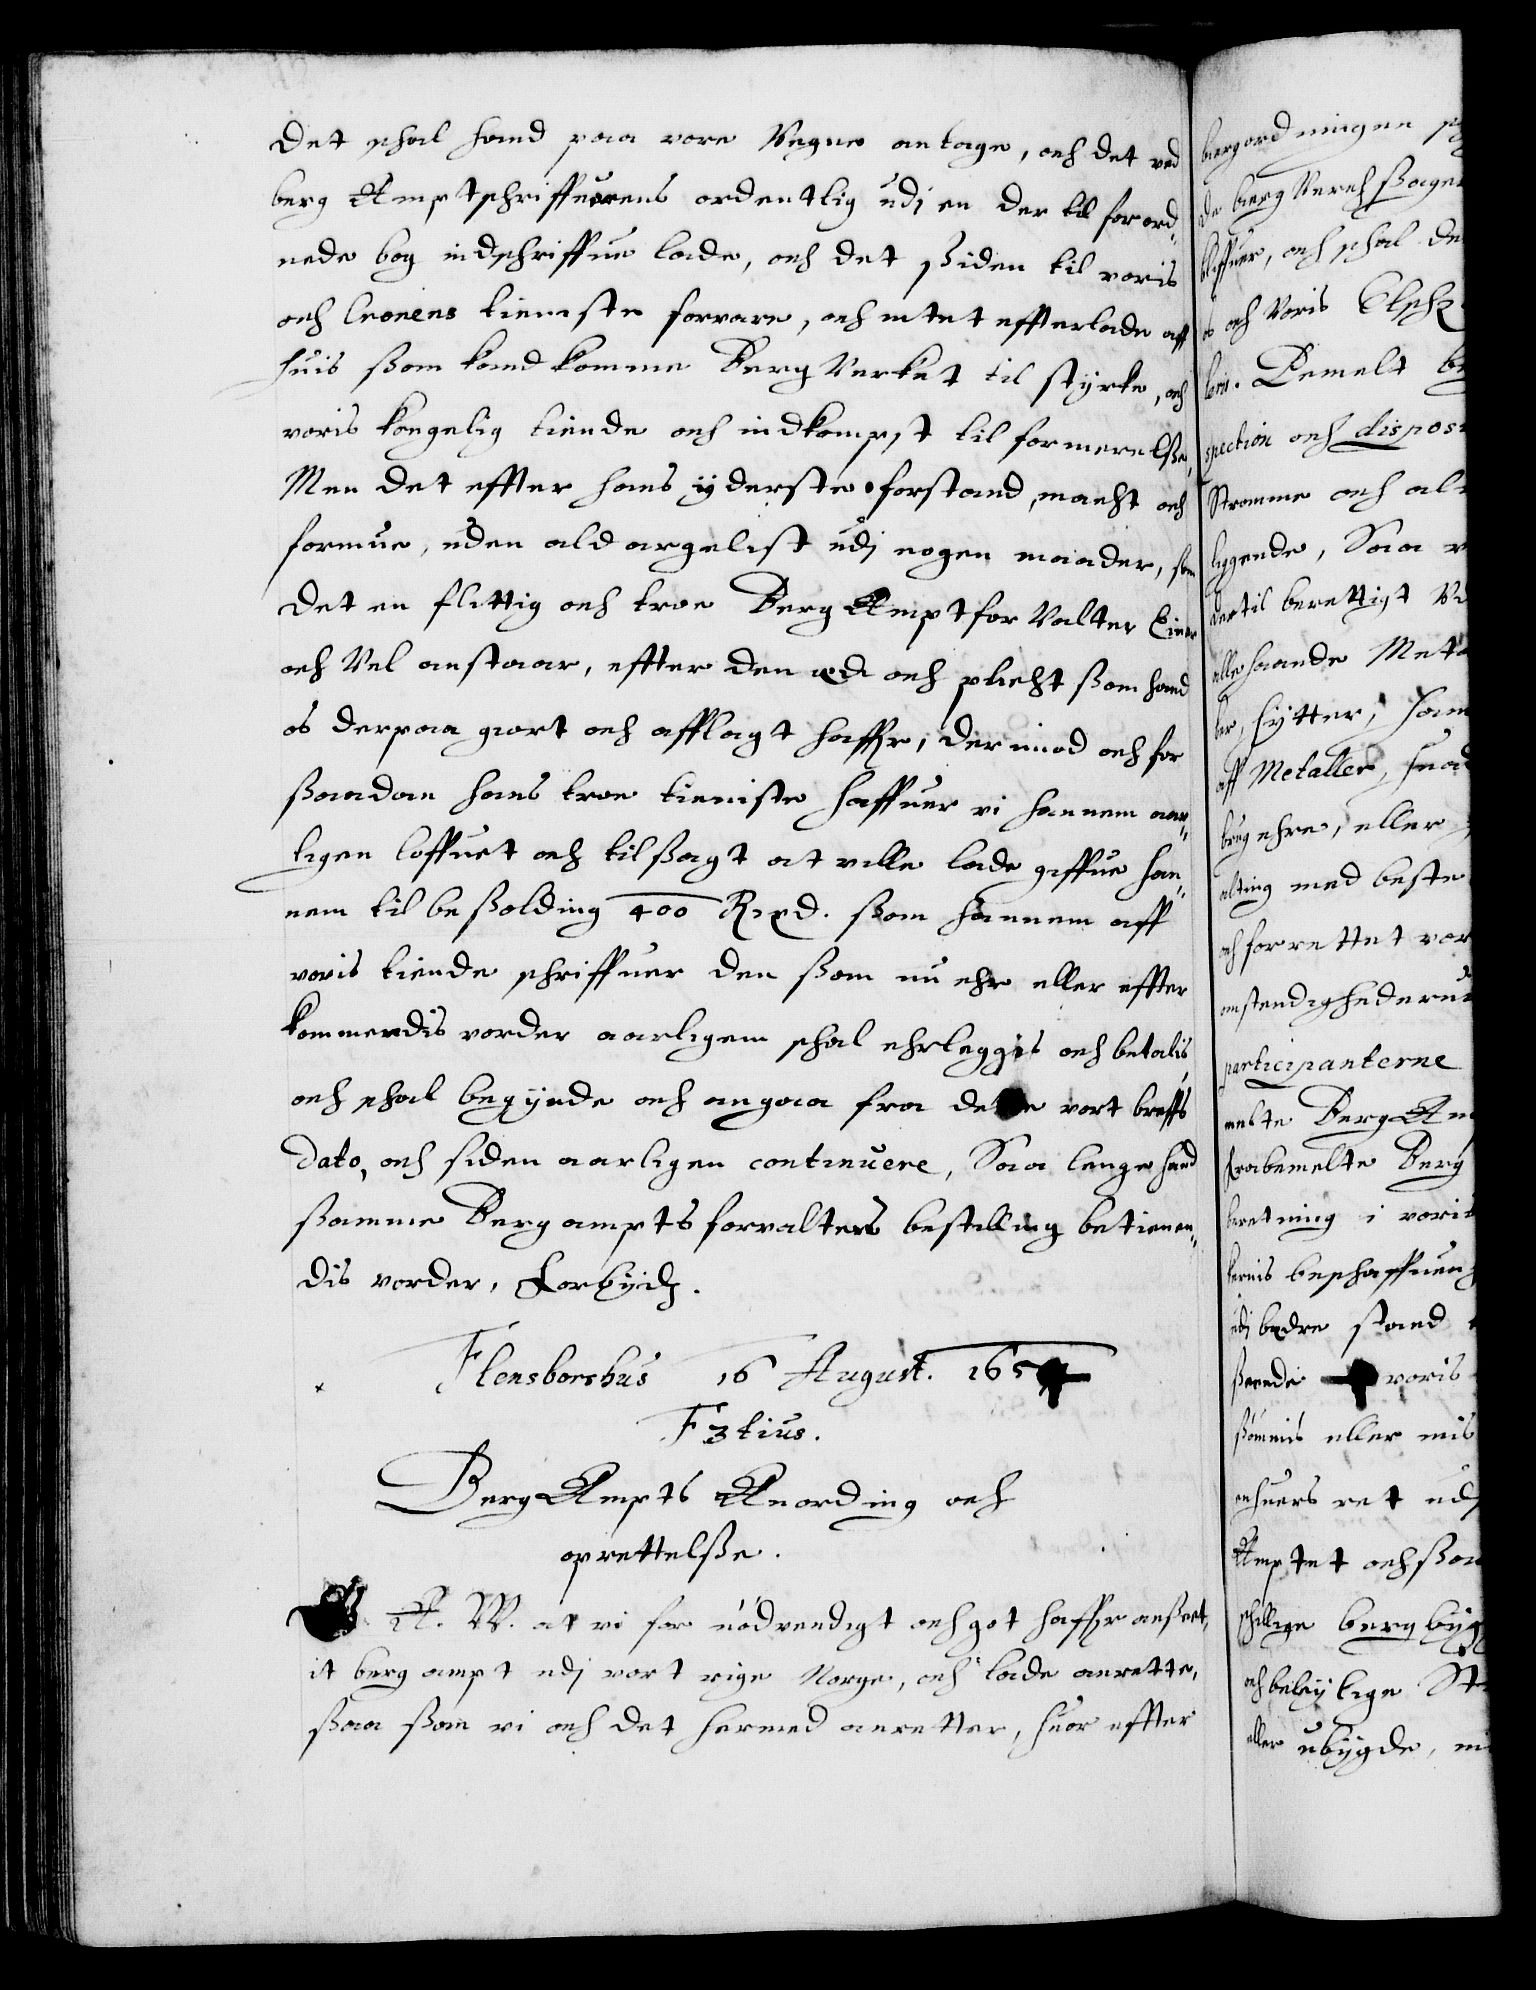 Det schal hand paa vore Vegne antage, och det ved
berg Amptschriffuerens ordentlig udj en der til forord,
nede bog indschriffue lade, och det ßiden til voris
och Cronens tienniste forvare, och intet effterlade aff
huis ßom kand komme Berg Verket til styrke, och
voris kongelig tiende och indkompst til formerelße,
Men det effter hans yderste forstand, macht och
formue, uden ald argelist udj nogen maader, som
det en flittig och troe Berg Ampt forValter Einer
och Vel anstaar, effter den æd och plicht ßom hand
os derpaa giort och afflagt haffr, Der imod och for
ßaadan hans troe tieniste haffuer vi hannem aar,
ligen loffuet och tilßagt at ville lade giffue han,
nem til beßolding 400 Rixd. ßom hannem aff
voris tiende schriffuer den ßom nu ehr eller effter
kommendis vorder aarligem schal ehrleggis och betalis,
och schal begynde och angaa fra dette vort breffs
Dato, och siden aarligen continuere, Saa lenge hand
ßamme Berg ampts forvalters bestilling betienen,
dis vorder, Forbydh.
Flensborghus 16 August. 165
F 3tius.
Berg Ampts Anording och
oprettelße.
A. W. at vi for nödvendigt och got haffr anßeet,
it berg ampt udj vort rige Norge, och lade anrette,
ßaa ßom vi och det hermed anretter, huor effter
bergordningen
de berg Verch ßager
bliffuer, och schal de
os och Voris
Bemelt
spection och disposi
Stromme och al
liggende, Saa
dertil berettigt
allehaande Meta
hytter, ham
aff Metaller, huad
brug ehre, eller
alting med beste
och forrettet vor
omstendighederu
participanterne
melte Berg Am
frabemelte Berg
beretning i voris
beschaffuen
udj bedre stand
ßeende voris
eller mis
enhuers ret udj
Amptet och ßom
schillige berg byg
och beleylige St
eller ubygde,